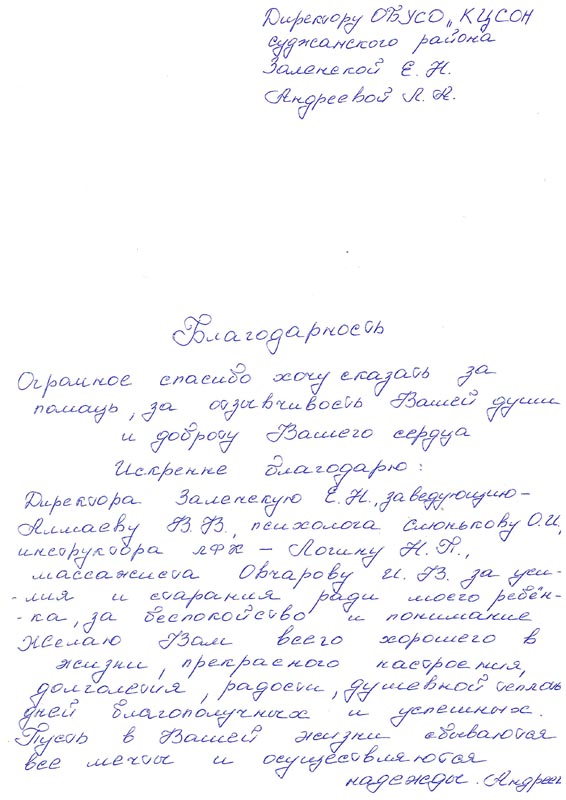 Директору ОБУСО „КЦСОН
Суджанского района
Заленской Е. Н.
Андреевой Л. Н.
Благодарность
Огромное спасибо хочу сказать за
помощь, за отзывчивость Вашей души
и доброту Вашего сердца
Искренне благодарю:
Директора Заленскую Е.Н., заведующию-
Алмаеву В.В., психолога Слюнькову О.И,
инструктора ЛФК - Логину Н.П.,
массажиста Овчарову И.В. за уси-
-лия и старания ради моего ребён-
-ка, за беспокойство и понимание
Желаю Вам всего хорошего в
жизни, прекрасного настроения,
долголетия, радости, душевной тепло
дней благополучных и успешных.
Пусть в Вашей жизни сбываются
все мечты и осуществляются
надежды. Андреев